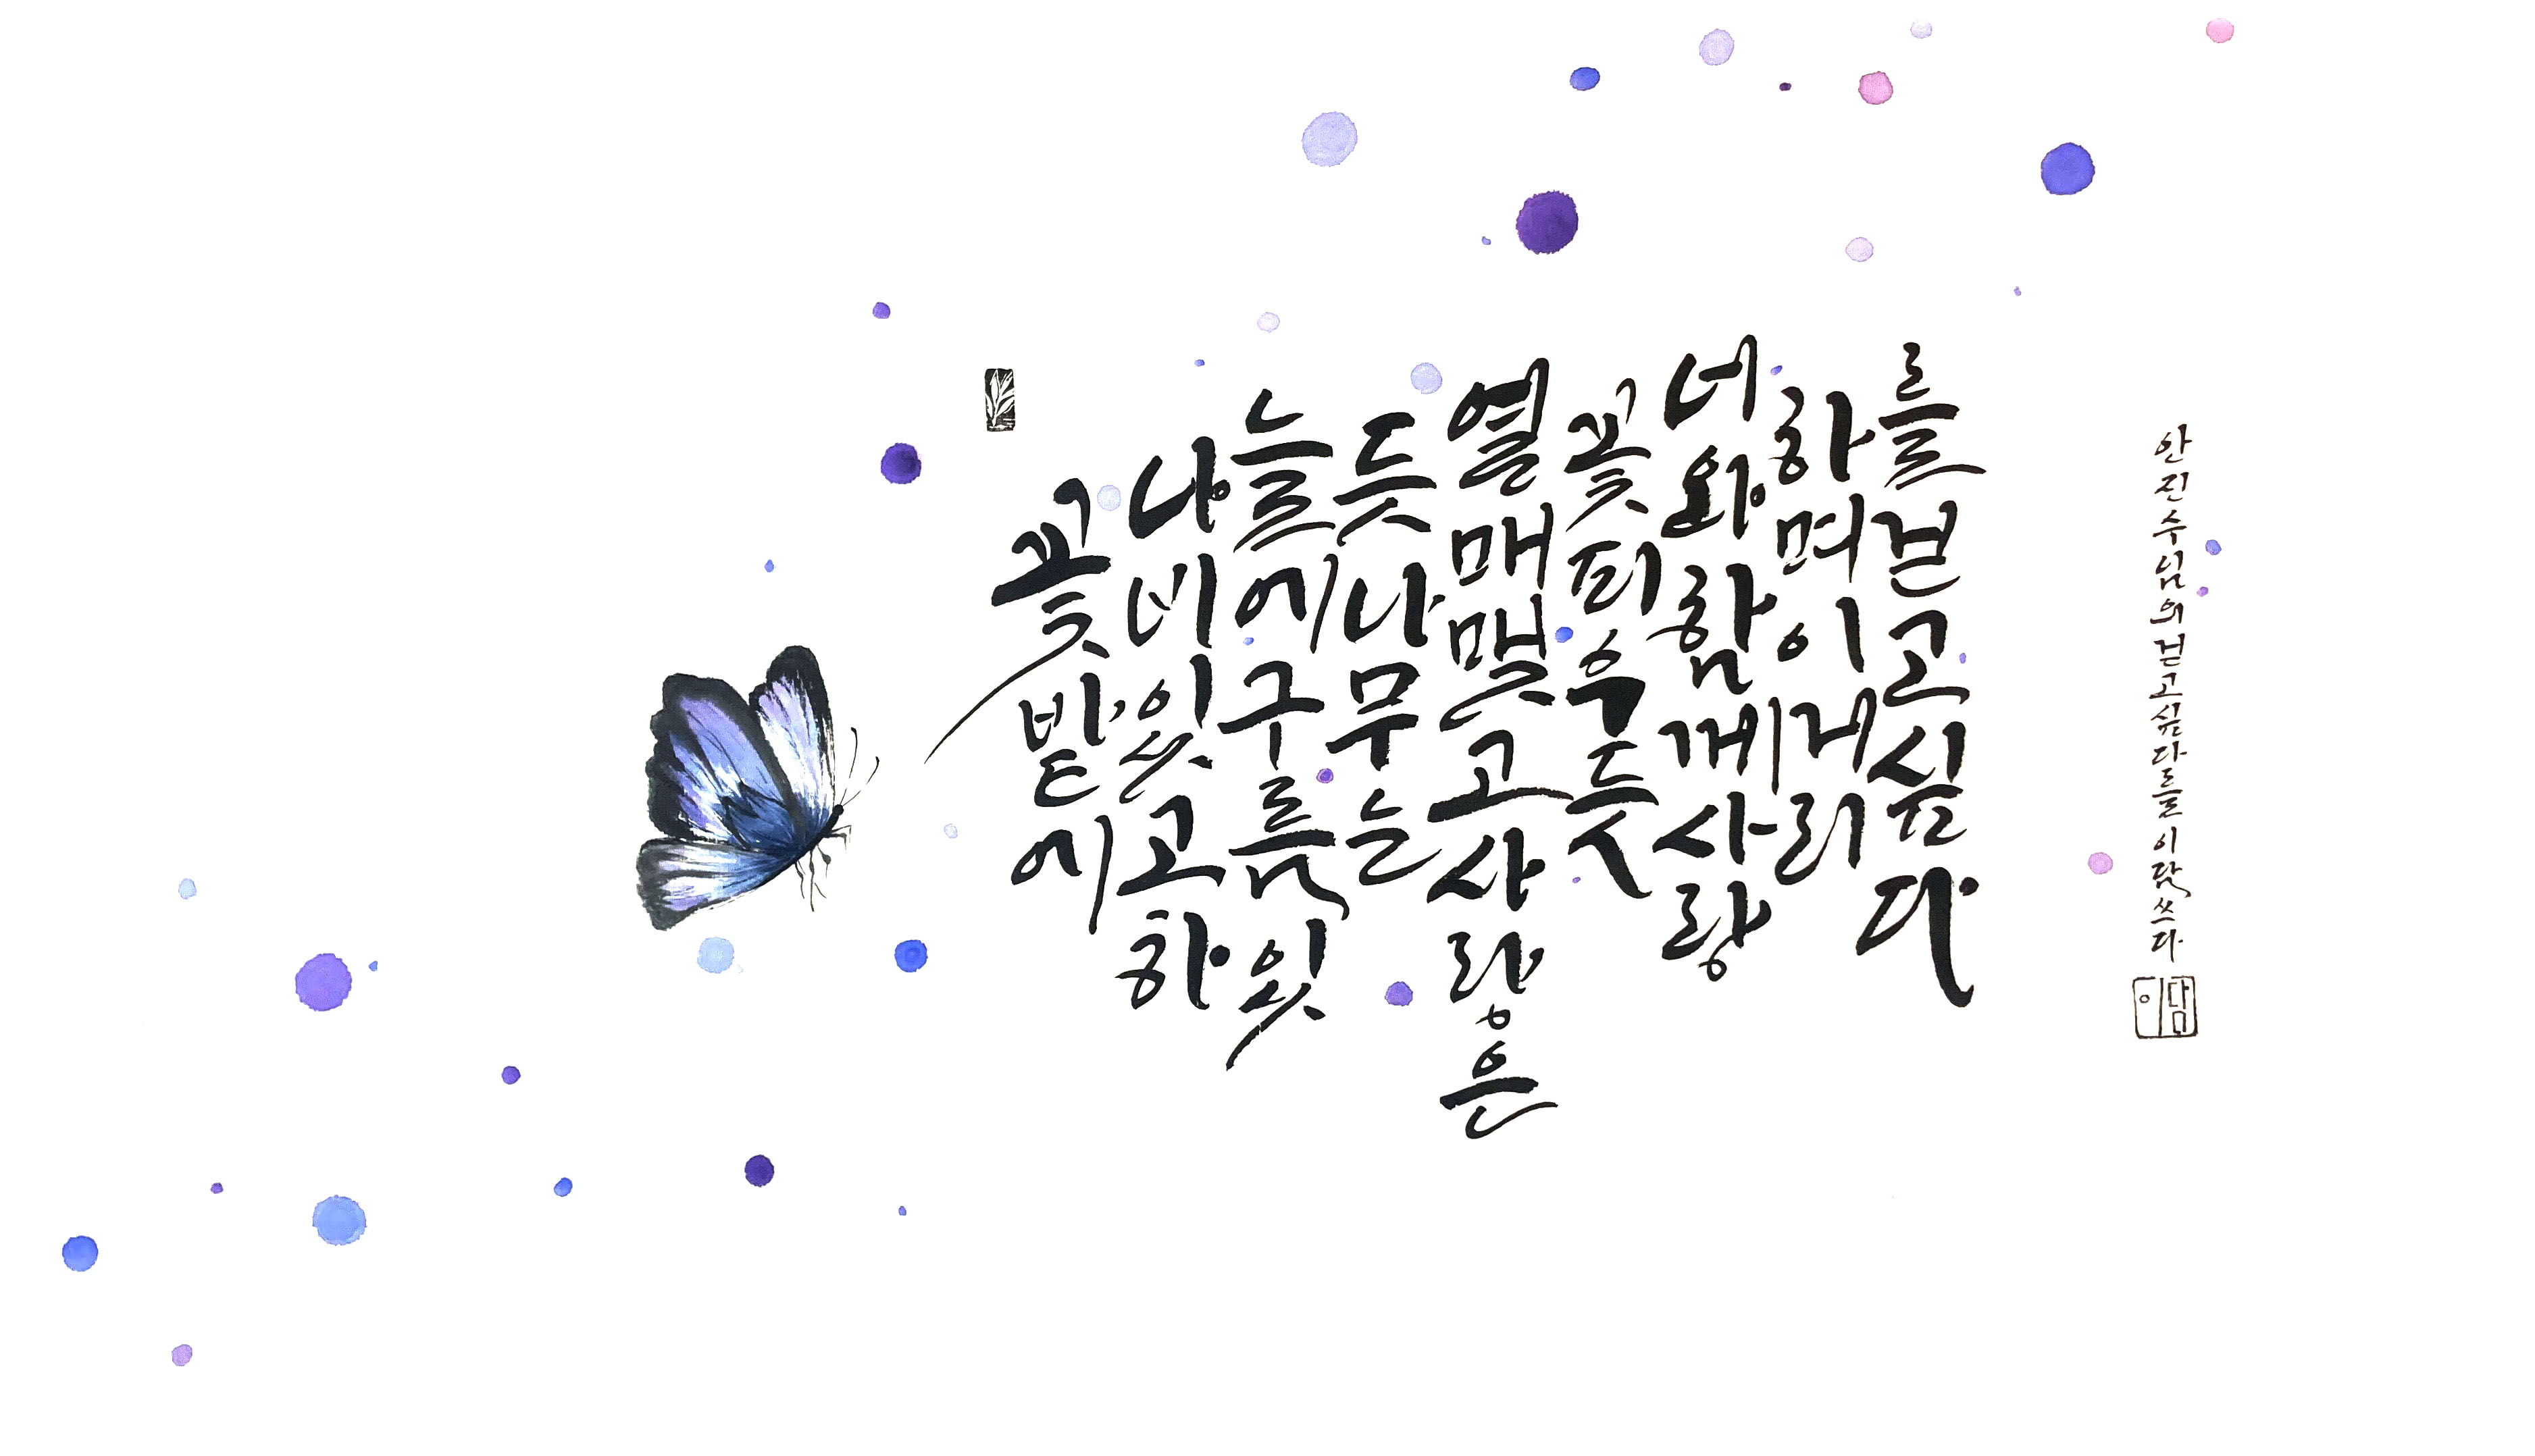 꽃밭에
나비 있고 하
늘에 구름 있
듯 나무는
열매 맺고 사랑은
꽃 피우듯
너와 함께 사랑
하며 이 거리
를 걷고 싶다
안진수님의 걷고싶다를 이담 쓰다
이담